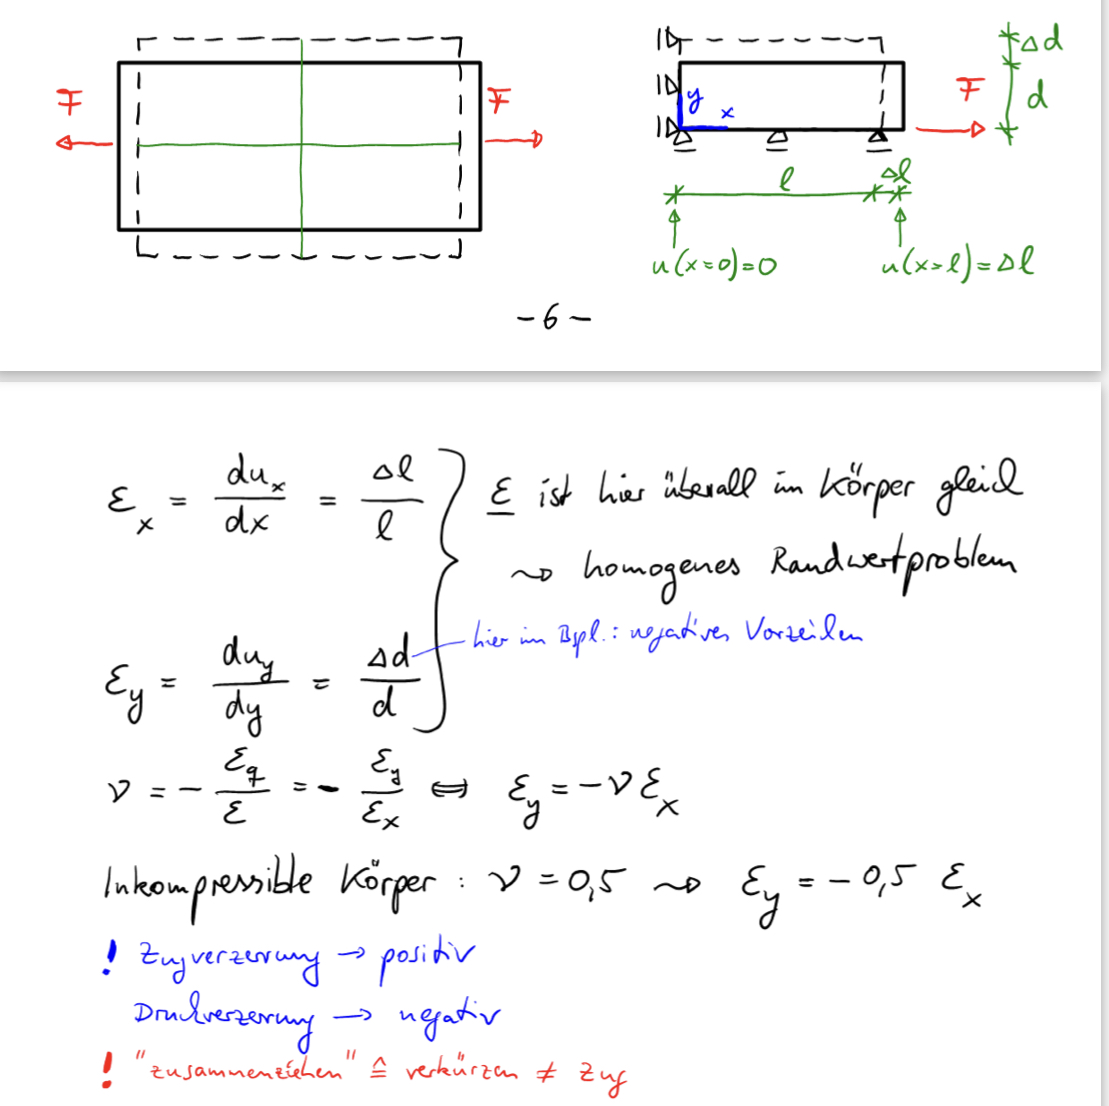 F F
y x F Δd
d
l Δl
u(x=0)=0 u(x=l)=Δl
- 6 -
ε_x = du_x/dx = Δl/l } ε ist hier überall im Körper gleich
⇝ homogenes Randwertproblem
hier im Bspl.: negatives Vorzeichen
ε_y = du_y/dy = Δd/d
ν = - ε_q/ε = - ε_y/ε_x ⇔ ε_y = -ν ε_x
Inkompressible Körper : ν = 0,5 ⇝ ε_y = - 0,5 ε_x
! Zugverzerrung → positiv
Druckverzerrung → negativ
! "zusammenziehen" ≙ verkürzen ≠ Zug